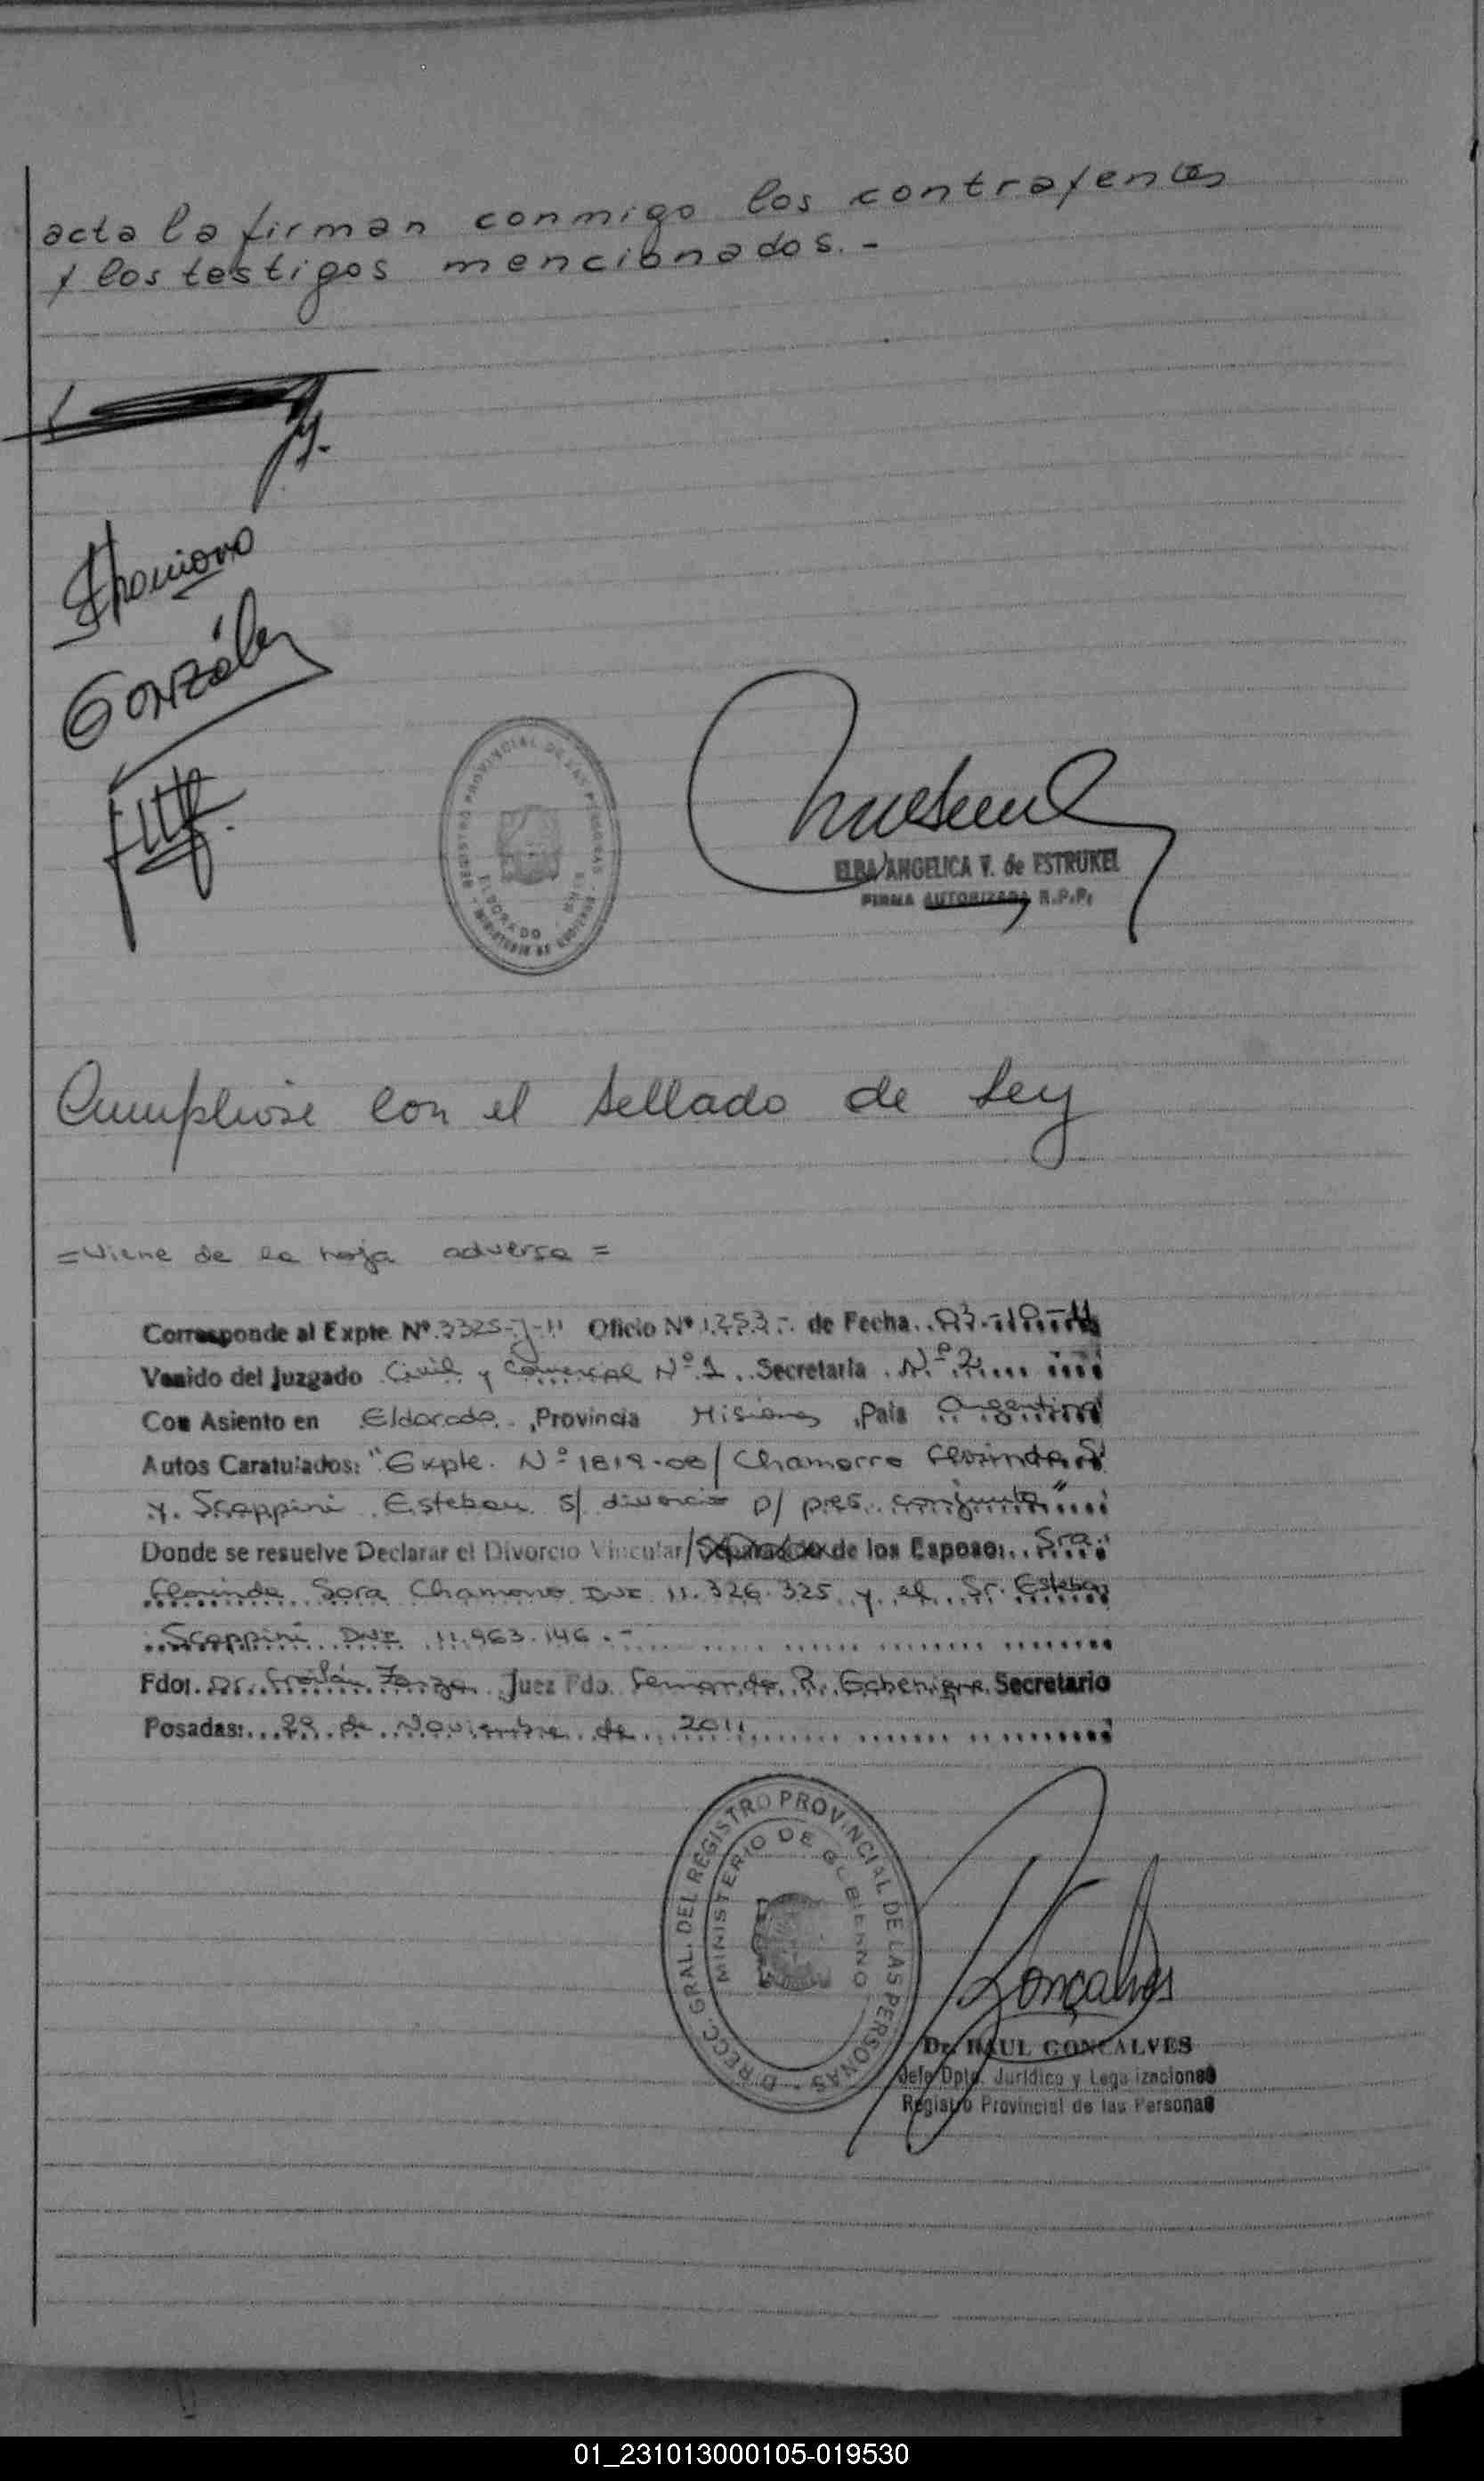 acta la firman conmigo los contrayentes
y los testigos mencionados. -
Chamorro
González
REGISTRO PROVINCIAL DE LAS PERSONAS
ELDORADO
ELBA ANGELICA V. de ESTRUKEL
FIRMA AUTORIZADA R.P.P.
Cumpliose con el sellado de Ley
= Viene de la hoja adversa =
Corresponde al Expte Nº 3325-J-11 Oficio Nº 1253 - de Fecha 03-10-11
Venido del Juzgado Civil y Comercial Nº 1 Secretaría Nº 2
Con Asiento en Eldorado, Provincia Misiones, País Argentina
Autos Caratulados: "Expte. Nº 1819-08/ Chamorro Florinda S.
y Scappini Esteban s/ divorcio p/ pres. conjunta"
Donde se resuelve Declarar el Divorcio Vincular/ de los Esposos: Sra.
Florinda Sara Chamorro DNI 11.326.325 y el Sr. Esteban
Scappini DNI 11.963.146.-
Fdo: Dr. Froilán Juez Fdo. Fernando R. Secretario
Posadas: 29 de Noviembre de 2011
DIRECC. GRAL. DEL REGISTRO PROVINCIAL DE LAS PERSONAS
MINISTERIO DE GOBIERNO
Gonçalves
Dr. RAUL GONCALVES
Jefe Dpto. Jurídico y Legalizaciones
Registro Provincial de las Personas
01_231013000105-019530